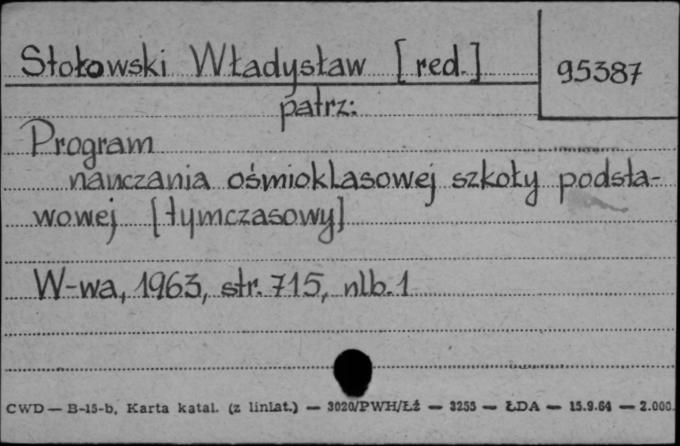 Stołowski Władysław [red.]
95387
patrz:
Program
nauczania ośmioklasowej szkoły podsta-
wowej [tymczasowy]
W-wa, 1963, str. 715, nlb. 1
CWD — B-15-b, Karta katal. (z liniat.) — 3020/PWH/Łź — 3255 — ŁDA — 15.9.64 — 2.000.